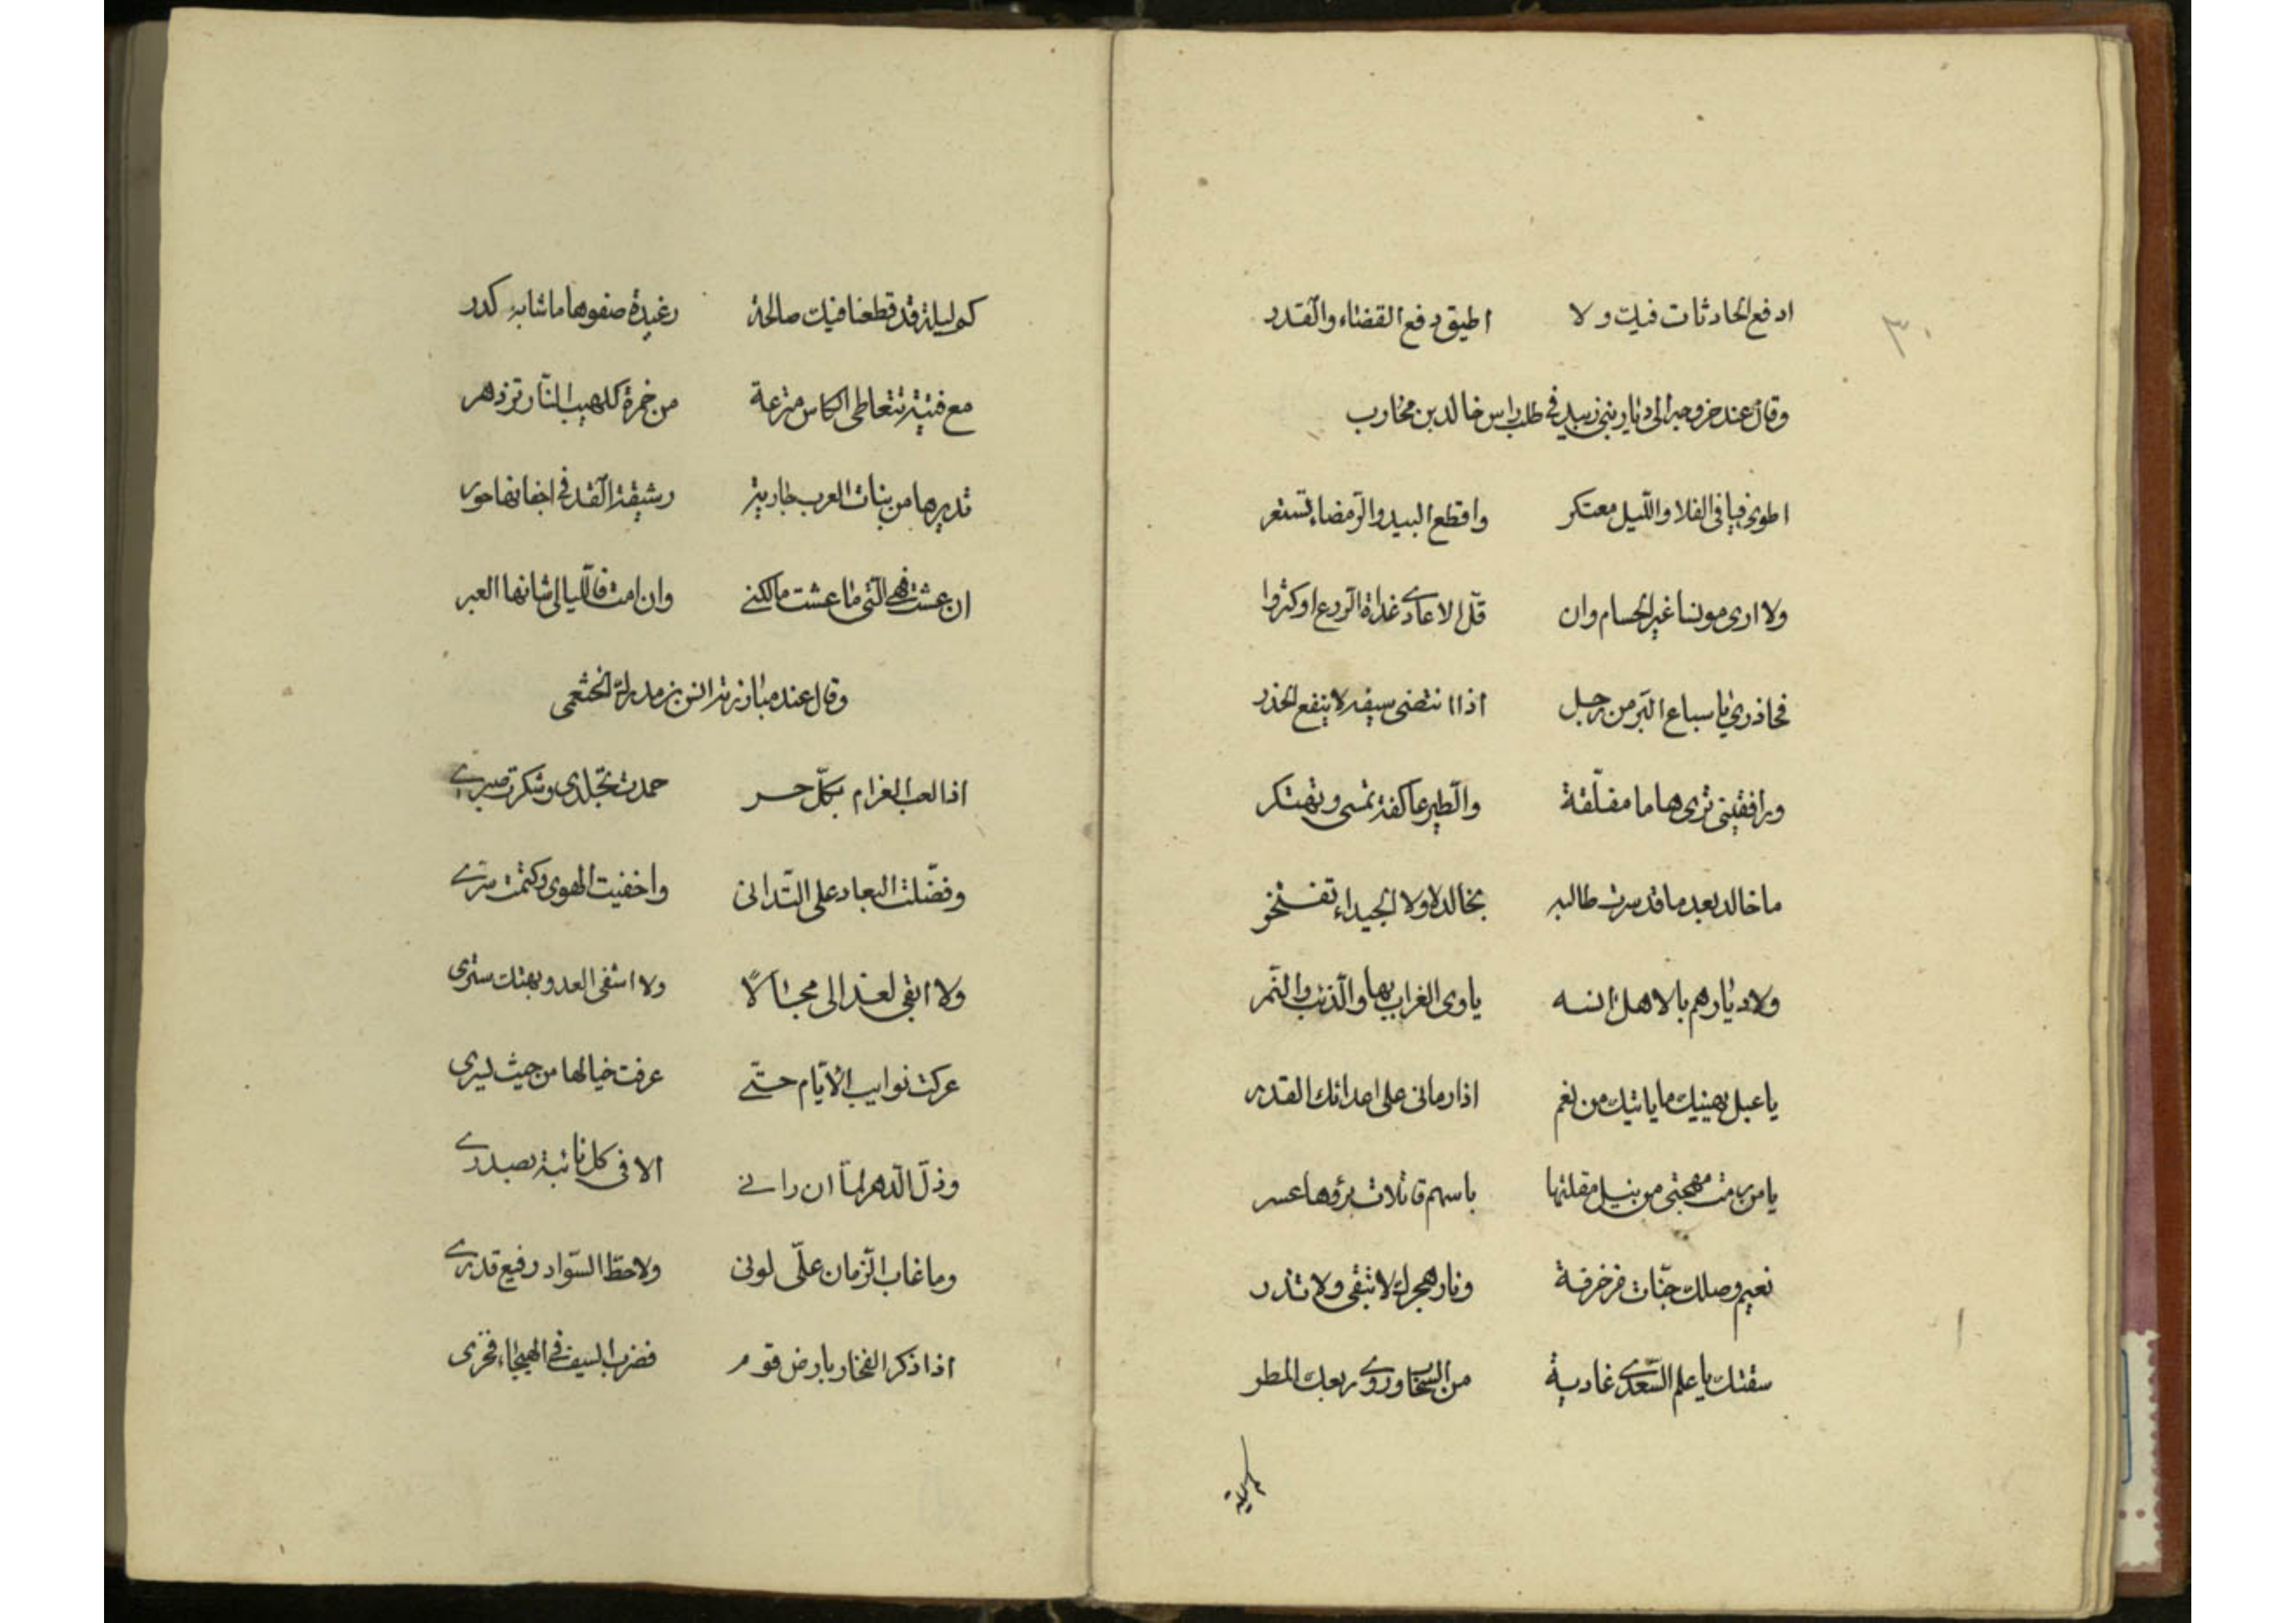 ٣٠
ادفع الحادثات فيك ولا اطيق دفع القضاء والقدر
وقال عند خروجه الى ديار بني زبيد في طلب راس خالد بن محارب
اطوى فيافى الفلا والليل معتكر واقطع البيد والرمضاء تستعر
ولا ارى مونسا غير الحسام وان قلّ الاعادى غداة الروع او كثروا
فحاذرى يا سباع البرّ من رجل اذا انتضى سيفه لا ينفع الحذر
ورافقينى ترى هاما مفلّقة والطير عاكفة تمسى وتهتكر
ما خالد بعد ما قد سرت طالبه بخالد لا ولا الجيداء تفتخر
ولا ديارهم بالاهل انسه ياوى الغراب بها والذئب والنمر
يا عبل يهينيك ما ياتيك من نعم اذا رمانى على اعدائك القدر
يا من رمت مهجتى من نبل مقلتها باسهم قاتلات برؤها عسر
نعيم وصلك جنّات مزخرفة ونار هجرك لا تبقى ولا تذر
سقتك يا علم السّعدى غادية من السحاب وروى ربعك المطر
كم ليلة
كم ليلة قد قطعنا فيك صالحة رغيدة صفوها ما شابه كدر
مع فتية تتعاطى الكاس مترعة من خمرة كلهيب النّار تزدهر
تديرها من بنات العرب جارية رشيقة القد فى اجفانها حور
ان عشت فهى التى ما عشت مالكتى وان امت فاللّيالى شانها العبر
وقال عند مبارزته انس بن مدركة الخثعمى
اذا لعب الغرام بكلّ حر حمدت تجلّدى وشكرت صبرى
وفضّلت البعاد على التّدانى واخفيت الهوى وكتمت سرّى
ولا ابقى لعذالى مجالًا ولا اشفى العدو بهتك سترى
عركت نوايب الايّام حتّى عرفت خيالها من حيث يسرى
وذلّ الدّهر لمّا ان رانى الاقى كل نائبة بصدرى
وما غاب الزّمان علىّ لونى ولا حطّ السّواد رفيع قدرى
اذا ذكر الفخار بارض قوم فضرب السيف فى الهيجاء فخرى